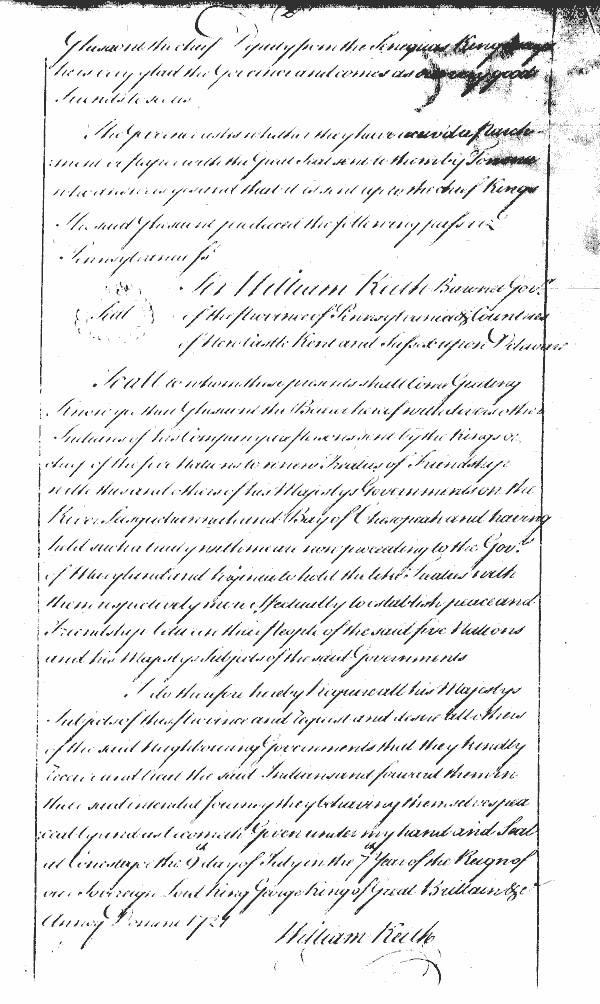 Ghesaont the chief Deputy from the Senequas King says
he is very glad the Governor and comes as our very good
Friends to see us
The Governor asks whether they have received a Parch-
ment or paper with the Great Seal sent to them by
who answers yes and that it is sent up to the chief Kings
The said Ghesaont produced the following pass viz
Pennsylvania ss
Seal
Sir William Keith Baronet Gov.r
of the Province of Pennsylvania & Counties
of New Castle Kent and Sussex upon Delaware
To all to whom these presents shall Come Greeting
Know ye that Ghesaont the Bearer hereof with divers other
Indians of his Company are persons sent by the Kings or
of the five Nations to renew Treaties of Friendship
with this and others of his Majestys Governments on the
River Susquehannah and Bay of Chesopeak and having
held such a treaty with me are now proceeding to the Gov.rs
of Maryland and Virginia to hold the like Treaties with
them respectively more effectually to establish peace and
Friendship between the People of the said five Nations
and his Majestys Subjects of the said Governments
I do therefore hereby Require all his Majestys
Subjects of this Province and request and desire all others
of the said Neighbouring Governments that they kindly
receive and treat the said Indians and forward them in
their said intended Journey they behaving themselves pea
ceably and as becometh Given under my hand and Seal
at Conestogoe the day of July in the 7th Year of the Reign of
our Sovereign Lord King George King of Great Brittain &c
Annoq Domini 1721
William Keith